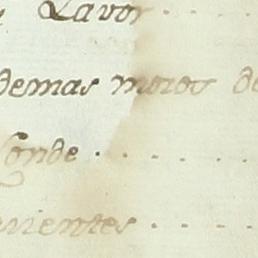 Lavor . . . .
demas moros de
Conde . . . . .
rientes . . . .